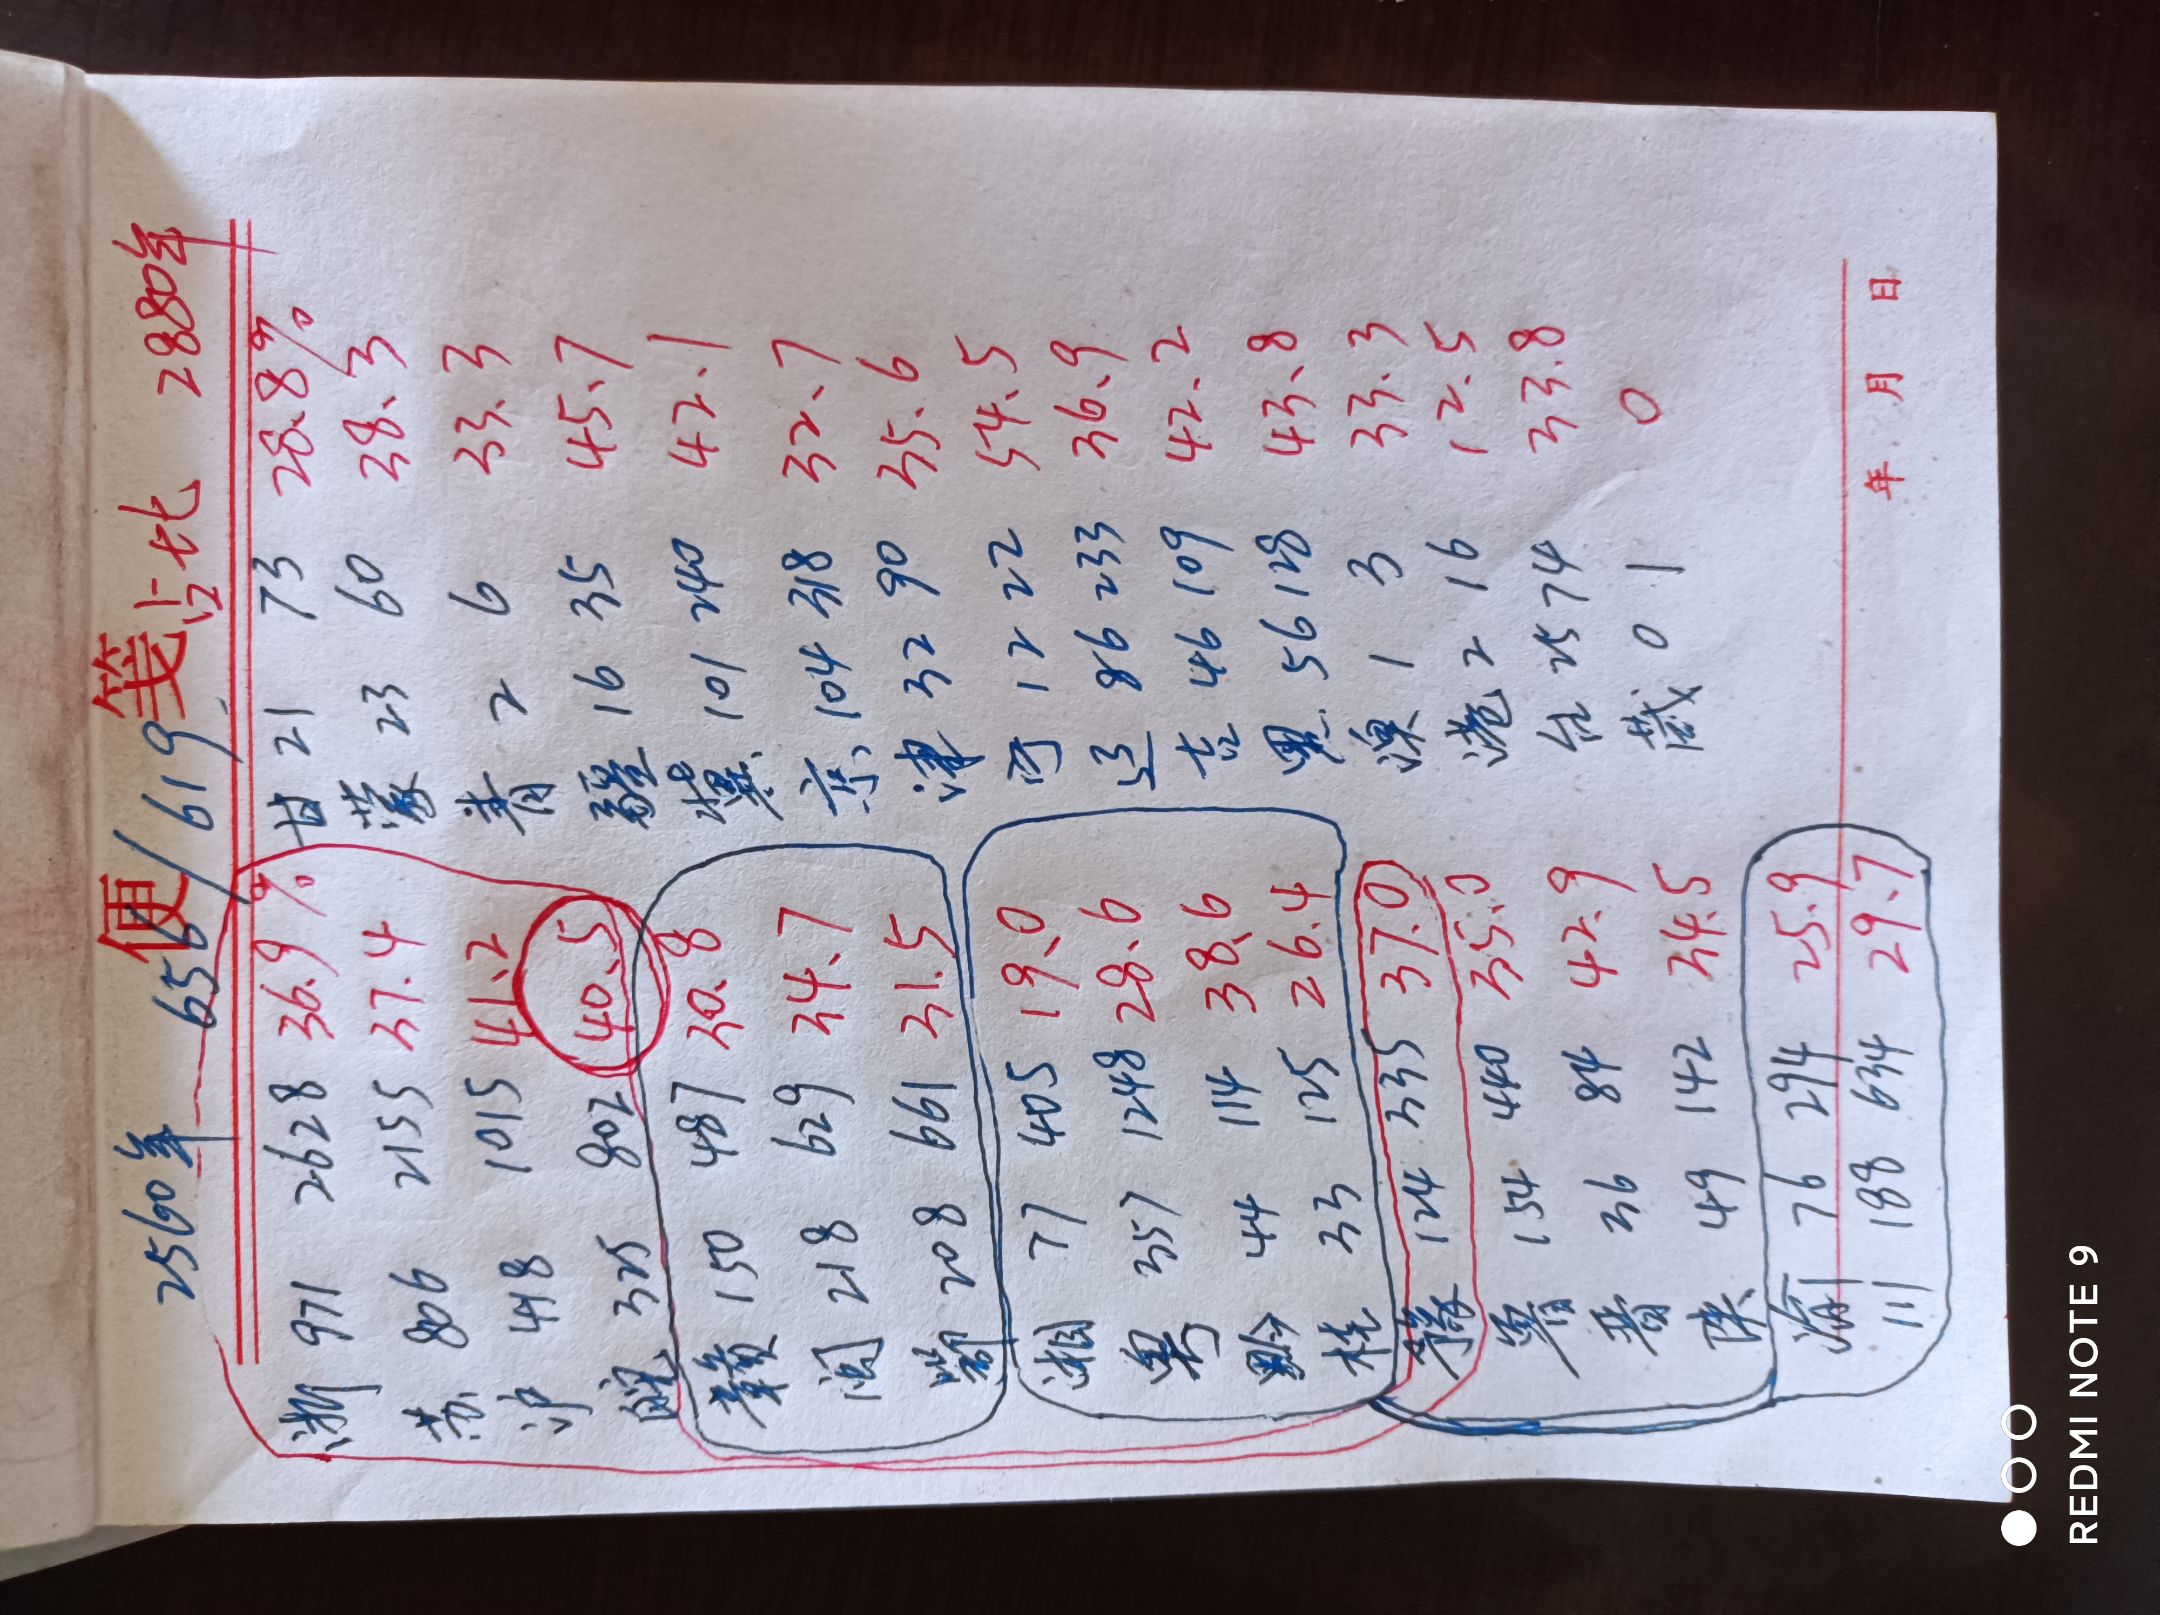 便笺
2560年 656/619 占比 2880年
浙 971 2628 36.9% 甘 21 73 28.8%
苏 806 2155 37.4 蒙 23 60 38.3
沪 418 1015 41.2 青 2 6 33.3
皖 325 802 40.5 疆 16 35 45.7
赣 150 487 30.8 冀 101 240 42.1
闽 218 629 34.7 京 104 318 32.7
鄂 208 661 31.5 津 32 90 35.6
湘 77 405 19.0 宁 12 22 54.5
粤 357 1248 28.6 辽 86 233 36.9
黔 44 114 38.6 吉 46 109 42.2
桂 33 125 26.4 黑 56 128 43.8
豫 124 335 37.0 澳 1 3 33.3
鲁 154 440 35.0 港 2 16 12.5
晋 36 84 42.9 台 25 74 33.8
陕 49 142 34.5 藏 0 1 0
海 76 294 25.9
川 188 634 29.7
年 月 日
REDMI NOTE 9